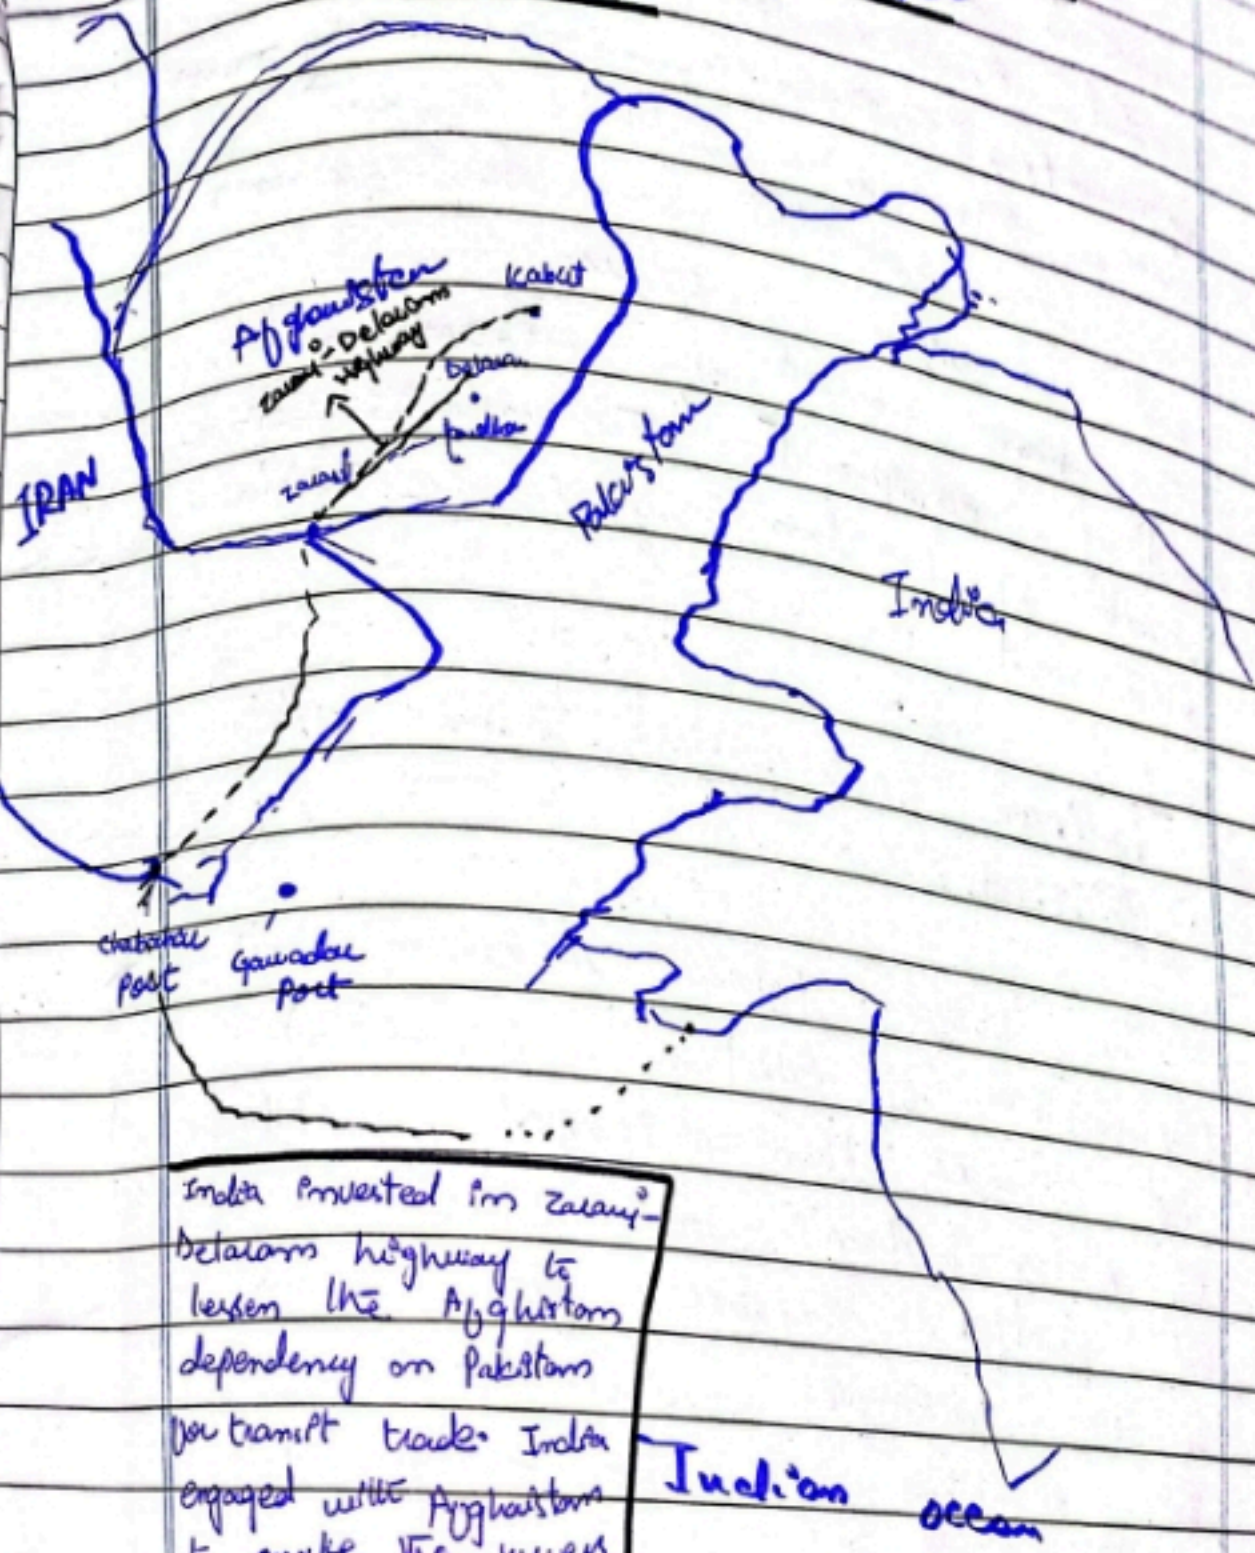 Kabul
Afganistan
Zaranj-Delaram
Highway
Delaram
Zaranj
IRAN
Pakistan
India
Chabahar
Port
Gawadar
Port
India invested in Zaranj-
Delaram highway to
lessen the Afghistan
dependency on Pakistan
for transit trade. India
engaged with Afghanistan
Indian ocean